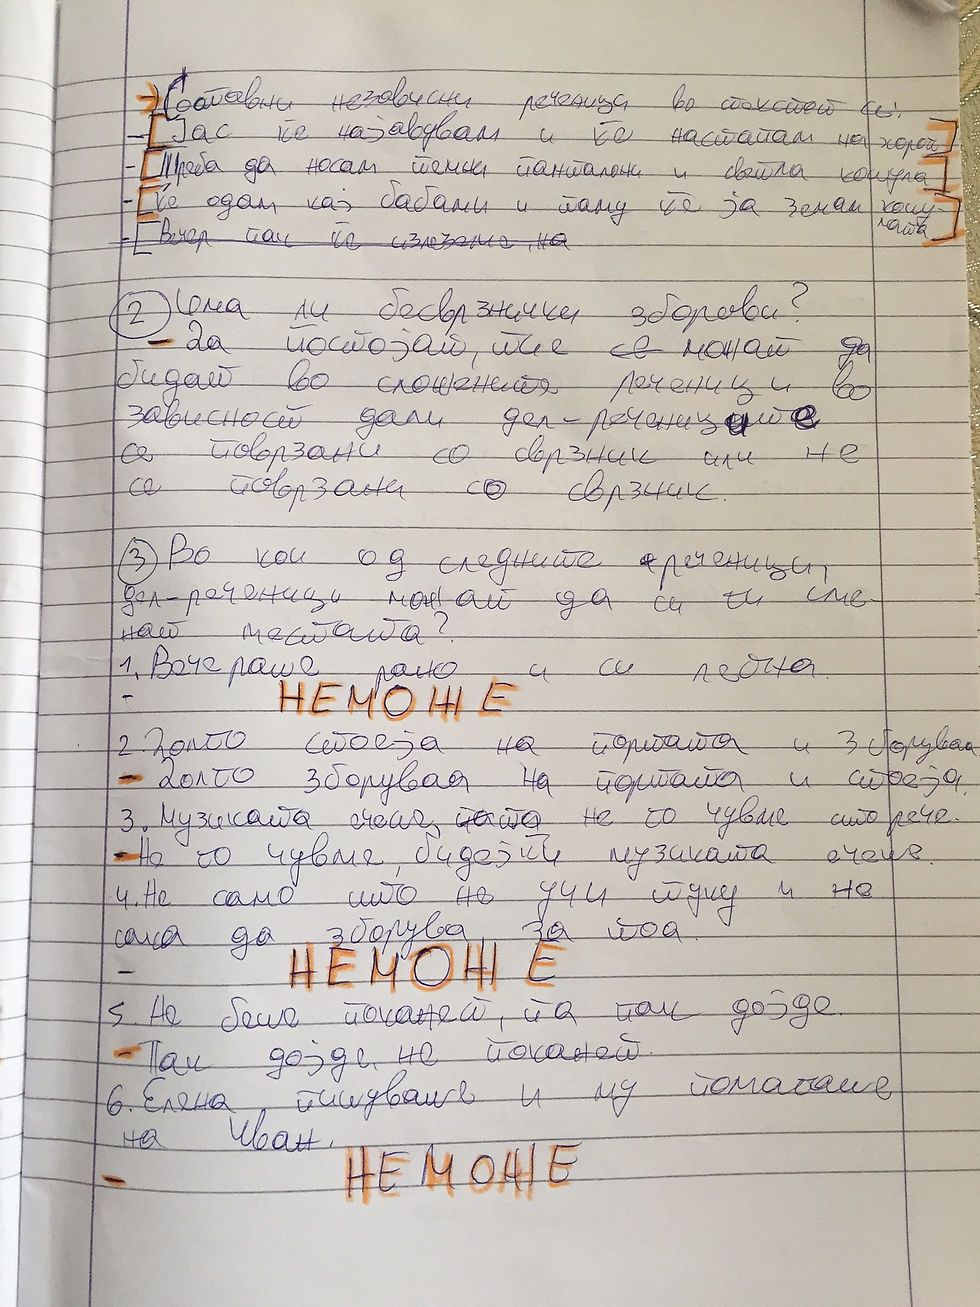 Составни независни реченици во текстот се:
- [Јас ќе најавувам и ќе настапам на хорот]
- [Треба да носам темни панталони и светла кошула]
- [Ќе одам кај бабами и таму ќе ја земам кошу-
лата]
- [Вечер пак ќе излеземе, на
2 Има ли бесврзнички зборови?
- Да постојат, тие се можат да
бидат во сложените реченици во
зависност дали дел-речениците
се поврзани со сврзник или не
се поврзани со сврзник.
3 Во кои од следните реченици,
дел-реченици можат да си ги сме-
нат местата?
1. Вечераше рано и си легна.
- НЕМОЖЕ
2. Долго стоеја на портата и зборуваа
- Долго зборуваа на портата и стоеја.
3. Музиката ечеше, не го чувме што рече.
- Не го чувме, бидејќи музиката ечеше.
4. Не само што не учи туку и не
сака да зборува за тоа.
- НЕМОЖЕ
5. Не беше поканет, па пак дојде.
- Пак дојде, не поканет.
6. Елена пишуваше и му помагаше
на Иван.
- НЕМОЖЕ